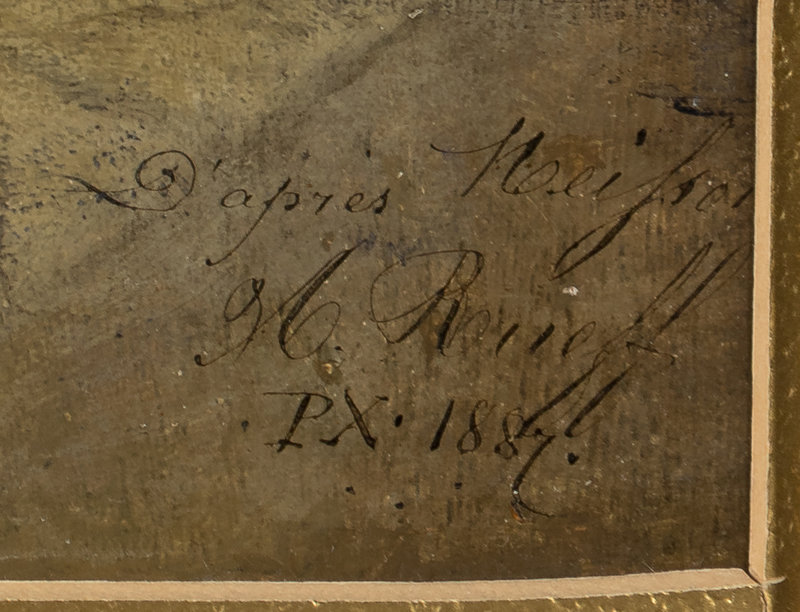 D'après Meisson
H. Rueff
PX. 1887.